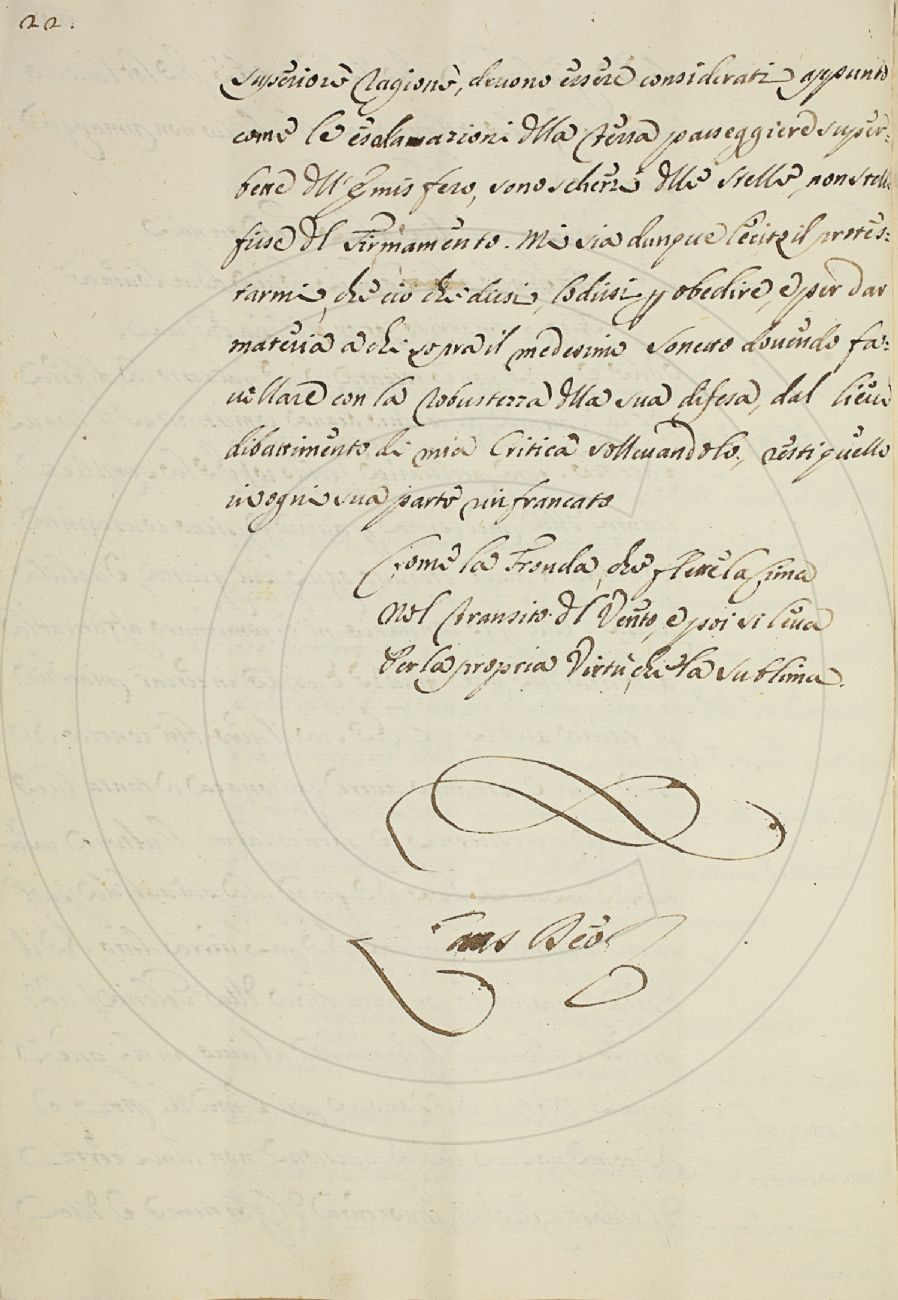 22.
superiore Ragione, devono essere considerati appunto
come le esalamazioni dlla Terra passeggiere super:
bette dll'Emisfero, sono scherzi dlle Stelle, non Stelle
fisse dl Firmamento. Mi sia dunque lecito il protes:
tarmi, che ciò che dissi, lo dissi p obedire, e per dar
materia a chi sopra il medesimo Sonetto dovendo fa:
vellare con la Robustezza dlla sua difesa, dal lieve
dibattimento di mia Critica sollevandolo, resti quello
in ogni sua parte rinfrancato
Come la Fronda, che flette la Cima
Nel transito dl Vento, e poi si leva
Per la propria Virtù, che la sublima.
Laus Deo